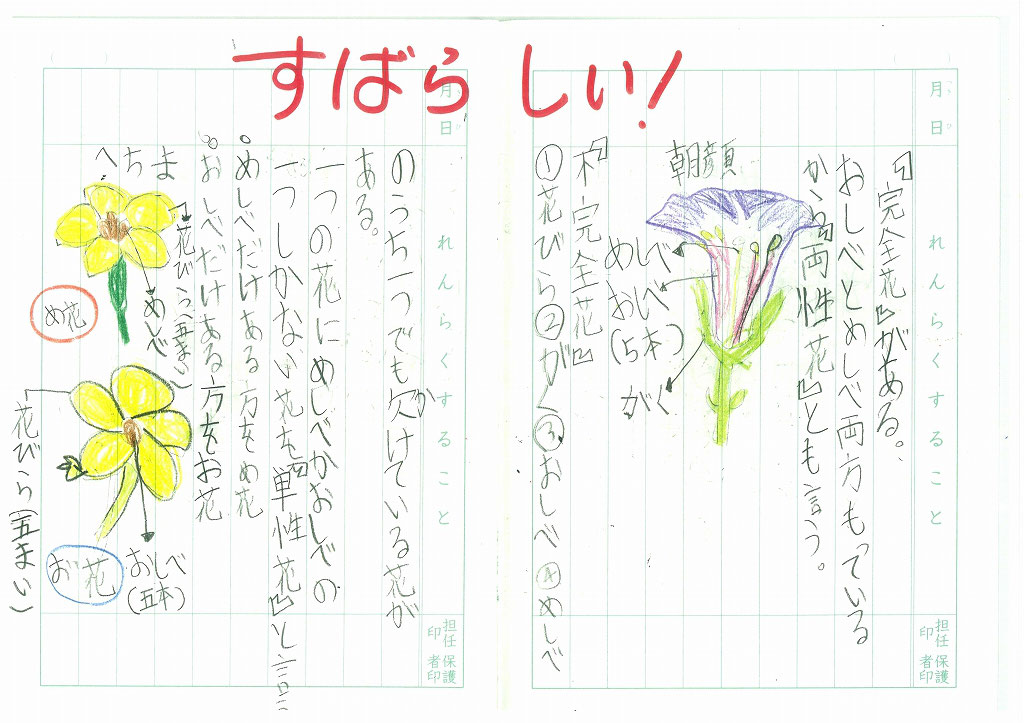 すばらしい!
月
日
れんらくすること
担任印
保護者印
『完全花』がある。
おしべとめしべ両方もっている
から『両性花』とも言う。
朝顔
めしべ
おしべ
(5本)
がく
『不完全花』
①花びら②がく③おしべ④めしべ
月
日
れんらくすること
担任印
保護者印
のうち一つでも欠けている花が
か
ある。
一つの花にめしべかおしべの
一つしかない花を『単性花』と言
。めしべだけある方をめ花
。おしべだけある方をお花
へちま
花びら(五まい)
めしべ
め花
花びら(五まい)
おしべ
(五本)
お花